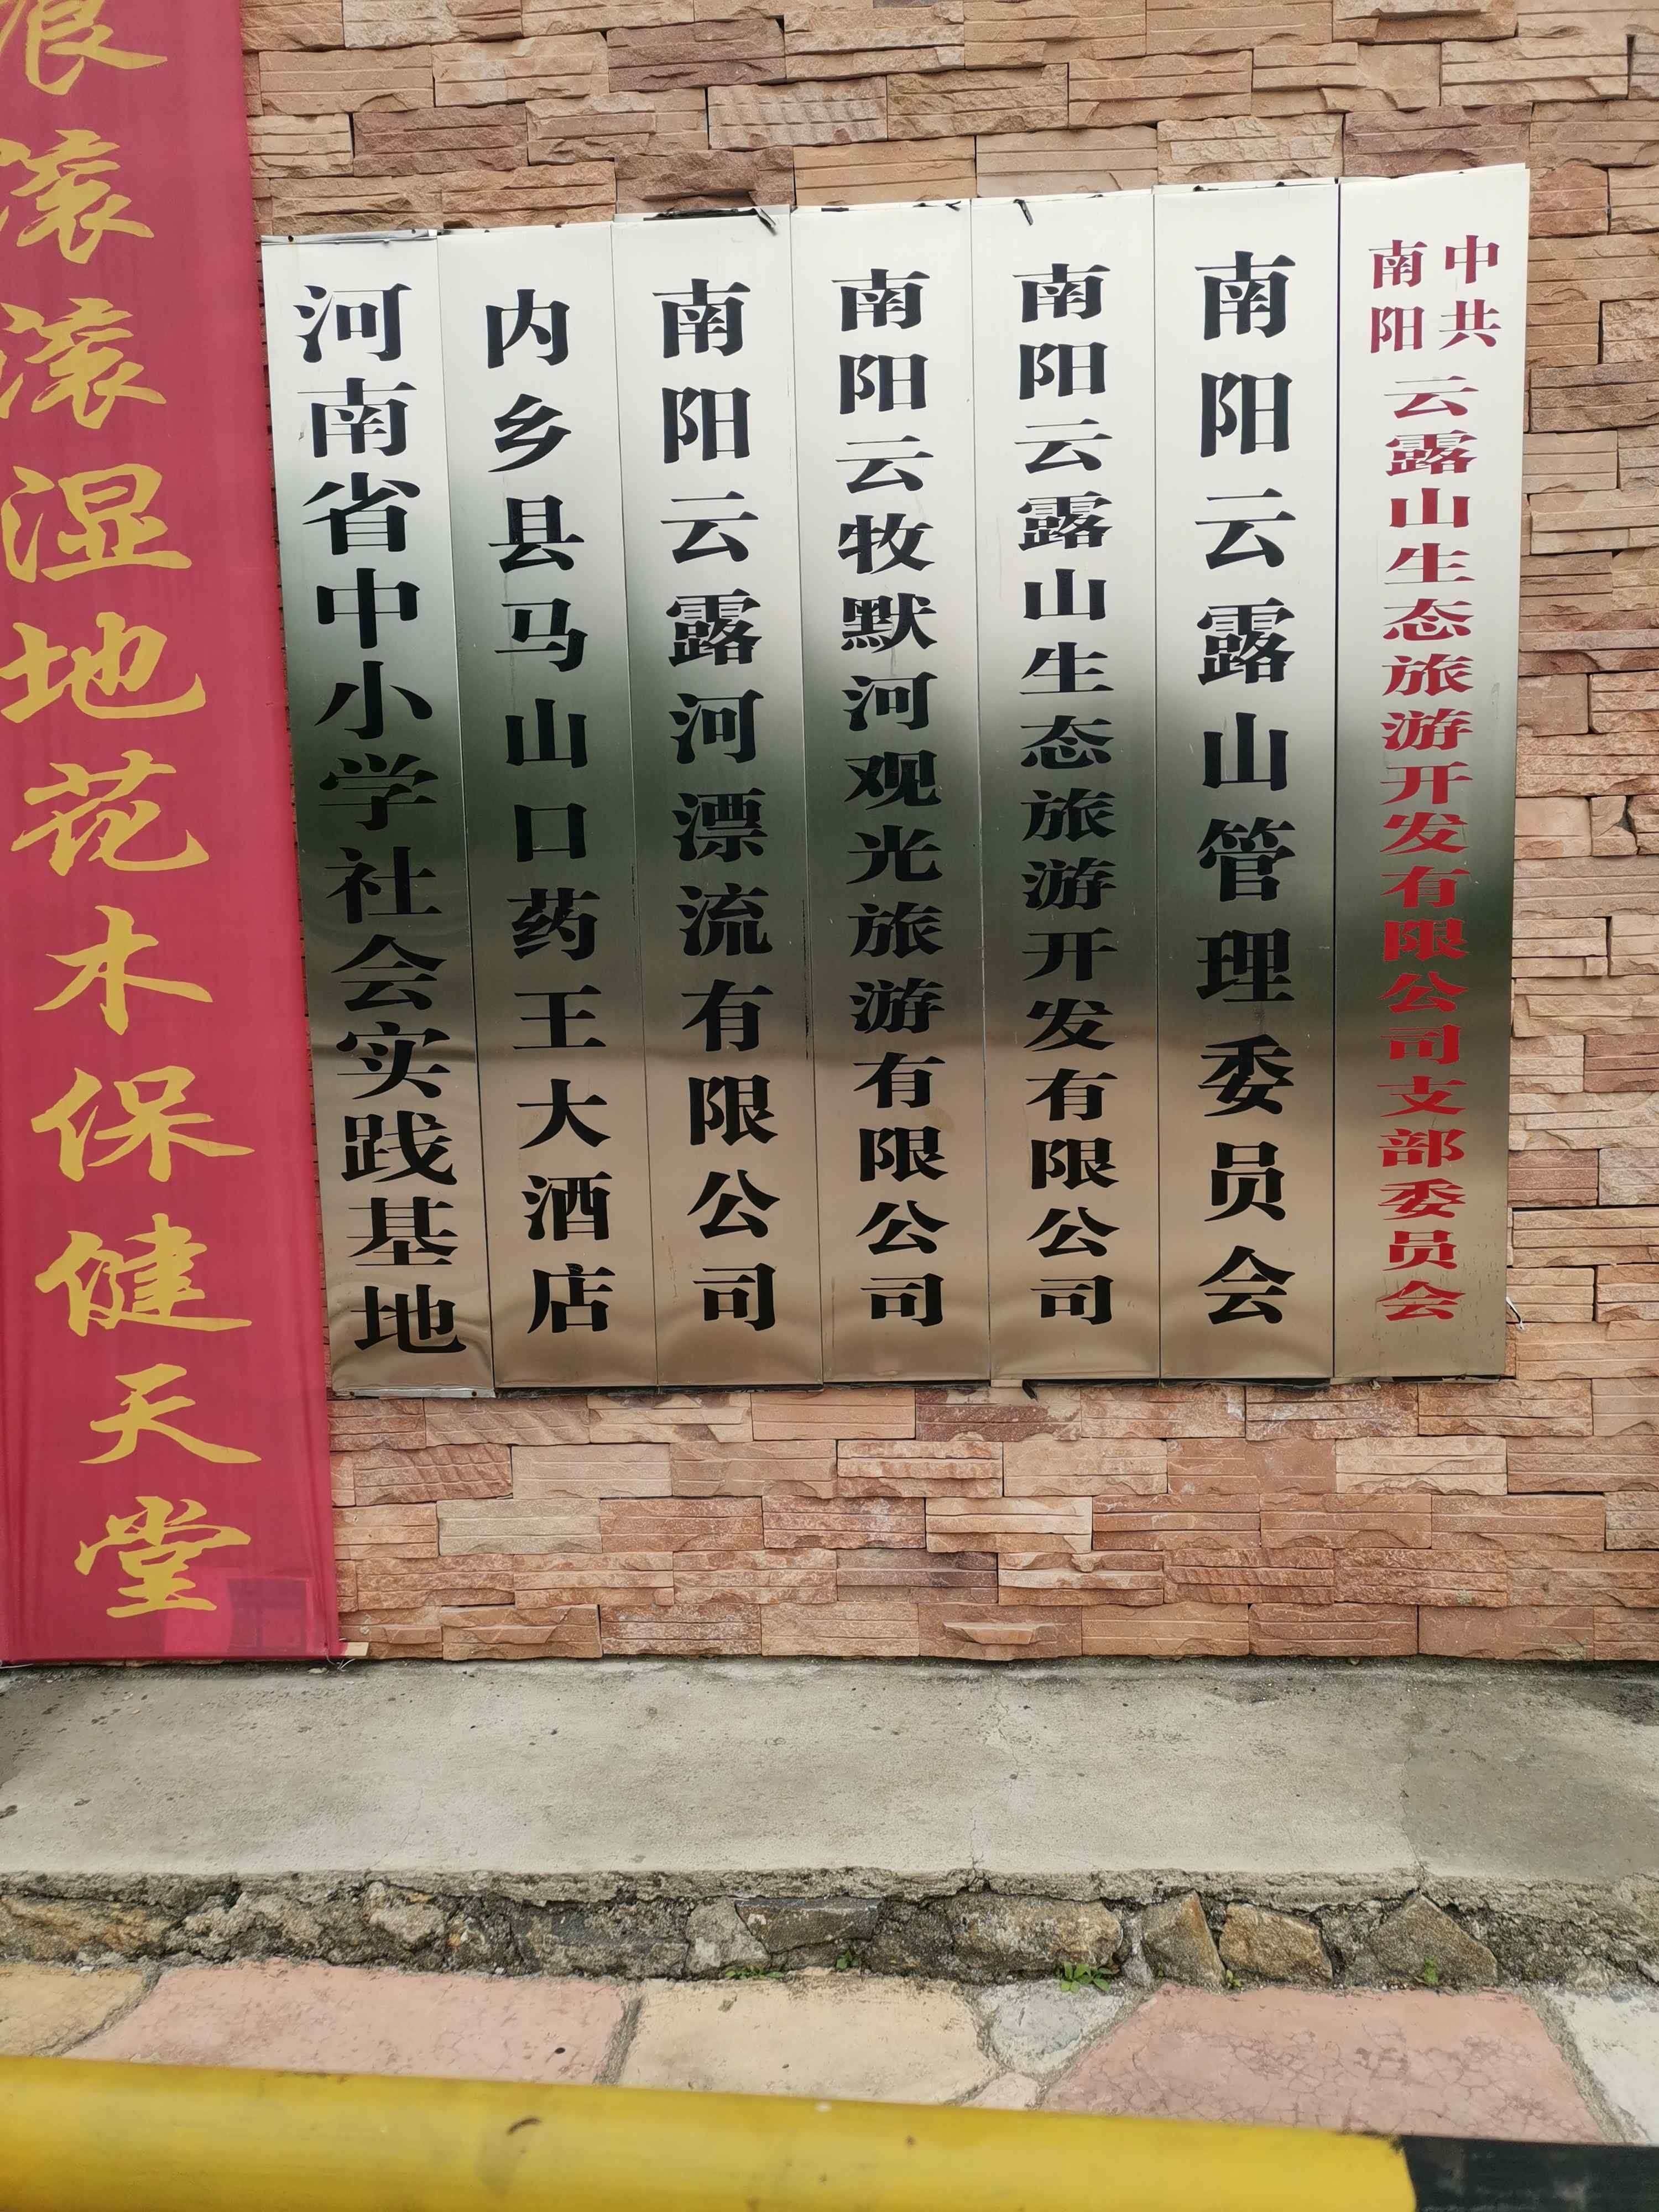 中共南阳云露山生态旅游开发有限公司支部委员会
南阳云露山管理委员会
南阳云露山生态旅游开发有限公司
南阳云牧默河观光旅游有限公司
南阳云露河漂流有限公司
内乡县马山口药王大酒店
河南省中小学社会实践基地
滚滚湿地花木保健天堂